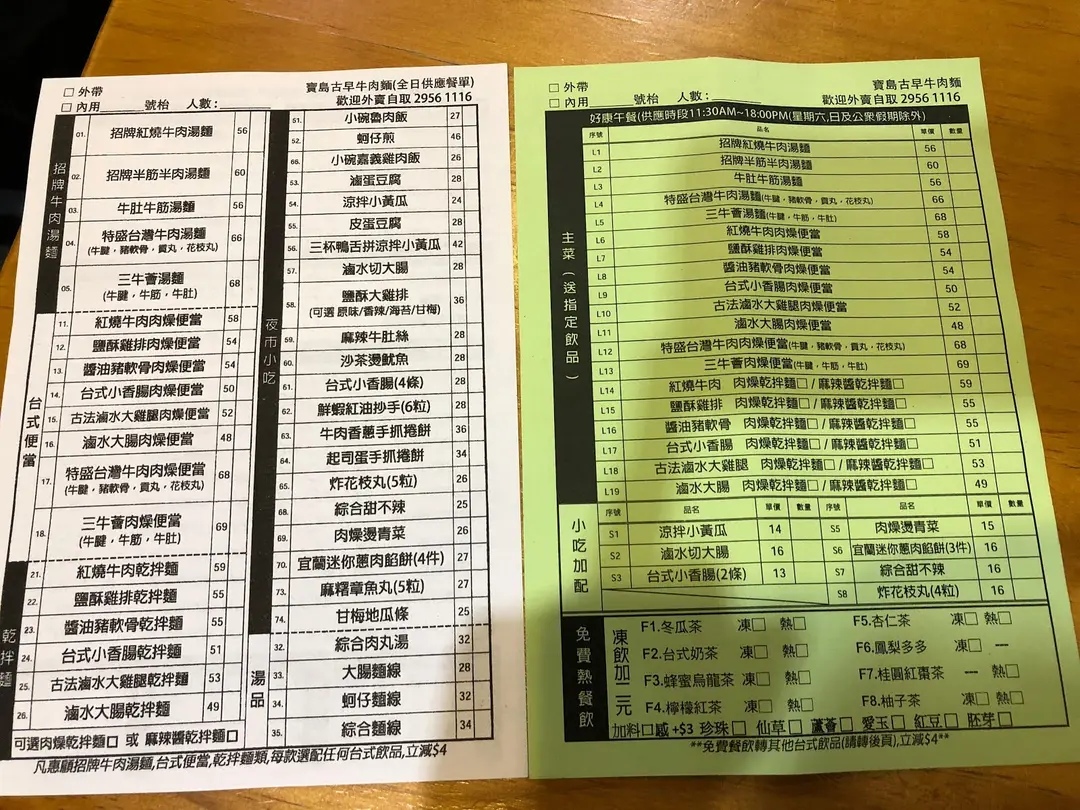 □ 外帶
□ 內用 號枱 人數：
寶島古早牛肉麵(全日供應餐單)
歡迎外賣自取 2956 1116
招牌牛肉湯麵
01. 招牌紅燒牛肉湯麵 56
02. 招牌半筋半肉湯麵 60
03. 牛肚牛筋湯麵 56
04. 特盛台灣牛肉湯麵 66
(牛腱，豬軟骨，貢丸，花枝丸)
05. 三牛薈湯麵 68
(牛腱，牛筋，牛肚)
台式便當
11. 紅燒牛肉肉燥便當 58
12. 鹽酥雞排肉燥便當 54
13. 醬油豬軟骨肉燥便當 54
14. 台式小香腸肉燥便當 50
15. 古法滷水大雞腿肉燥便當 52
16. 滷水大腸肉燥便當 48
17. 特盛台灣牛肉肉燥便當 68
(牛腱，豬軟骨，貢丸，花枝丸)
18. 三牛薈肉燥便當 69
(牛腱，牛筋，牛肚)
乾拌麵
21. 紅燒牛肉乾拌麵 59
22. 鹽酥雞排乾拌麵 55
23. 醬油豬軟骨乾拌麵 55
24. 台式小香腸乾拌麵 51
25. 古法滷水大雞腿乾拌麵 53
26. 滷水大腸乾拌麵 49
可選肉燥乾拌麵□ 或 麻辣醬乾拌麵□
夜市小吃
51. 小碗魯肉飯 27
52. 蚵仔煎 46
66. 小碗嘉義雞肉飯 26
53. 滷蛋豆腐 28
54. 涼拌小黃瓜 24
55. 皮蛋豆腐 28
56. 三杯鴨舌拼涼拌小黃瓜 42
57. 滷水切大腸 28
58. 鹽酥大雞排 36
(可選 原味/香辣/海苔/甘梅)
59. 麻辣牛肚絲 28
60. 沙茶燙魷魚 28
61. 台式小香腸(4條) 28
62. 鮮蝦紅油抄手(6粒) 28
63. 牛肉香蔥手抓捲餅 36
64. 起司蛋手抓捲餅 34
65. 炸花枝丸(5粒) 26
68. 綜合甜不辣 25
69. 肉燥燙青菜 26
70. 宜蘭迷你蔥肉餡餅(4件) 27
73. 麻糬章魚丸(5粒) 27
74. 甘梅地瓜條 25
湯品
32. 綜合肉丸湯 32
33. 大腸麵線 28
34. 蚵仔麵線 32
35. 綜合麵線 34
凡惠顧招牌牛肉湯麵,台式便當,乾拌麵類,每款選配任何台式飲品,立減$4
□ 外帶
□ 內用 號枱 人數：
寶島古早牛肉麵
歡迎外賣自取 2956 1116
好康午餐(供應時段11:30AM~18:00PM(星期六,日及公衆假期除外)
序號 品名 單價 數量
主菜(送指定飲品)
L1 招牌紅燒牛肉湯麵 56
L2 招牌半筋半肉湯麵 60
L3 牛肚牛筋湯麵 56
L4 特盛台灣牛肉湯麵(牛腱，豬軟骨，貢丸，花枝丸) 66
L5 三牛薈湯麵(牛腱，牛筋，牛肚) 68
L6 紅燒牛肉肉燥便當 58
L7 鹽酥雞排肉燥便當 54
L8 醬油豬軟骨肉燥便當 54
L9 台式小香腸肉燥便當 50
L10 古法滷水大雞腿肉燥便當 52
L11 滷水大腸肉燥便當 48
L12 特盛台灣牛肉肉燥便當(牛腱，豬軟骨，貢丸，花枝丸) 68
L13 三牛薈肉燥便當(牛腱，牛筋，牛肚) 69
L14 紅燒牛肉 肉燥乾拌麵□ / 麻辣醬乾拌麵□ 59
L15 鹽酥雞排 肉燥乾拌麵□ / 麻辣醬乾拌麵□ 55
L16 醬油豬軟骨 肉燥乾拌麵□ / 麻辣醬乾拌麵□ 55
L17 台式小香腸 肉燥乾拌麵□ / 麻辣醬乾拌麵□ 51
L18 古法滷水大雞腿 肉燥乾拌麵□ / 麻辣醬乾拌麵□ 53
L19 滷水大腸 肉燥乾拌麵□ / 麻辣醬乾拌麵□ 49
小吃加配
序號 品名 單價 數量 序號 品名 單價 數量
S1 涼拌小黃瓜 14 S5 肉燥燙青菜 15
S2 滷水切大腸 16 S6 宜蘭迷你蔥肉餡餅(3件) 16
S3 台式小香腸(2條) 13 S7 綜合甜不辣 16
S8 炸花枝丸(4粒) 16
免費熱餐飲
凍飲加二元
F1.冬瓜茶 凍□ 熱□ F5.杏仁茶 凍□ 熱□
F2.台式奶茶 凍□ 熱□ F6.鳳梨多多 凍□ ---
F3.蜂蜜烏龍茶 凍□ 熱□ F7.桂圓紅棗茶 --- 熱□
F4.檸檬紅茶 凍□ 熱□ F8.柚子茶 凍□ 熱□
加料口感 +$3 珍珠□ 仙草□ 蘆薈□ 愛玉□ 紅豆□ 胚芽□
**免費餐飲轉其他台式飲品(請轉後頁),立減$4**